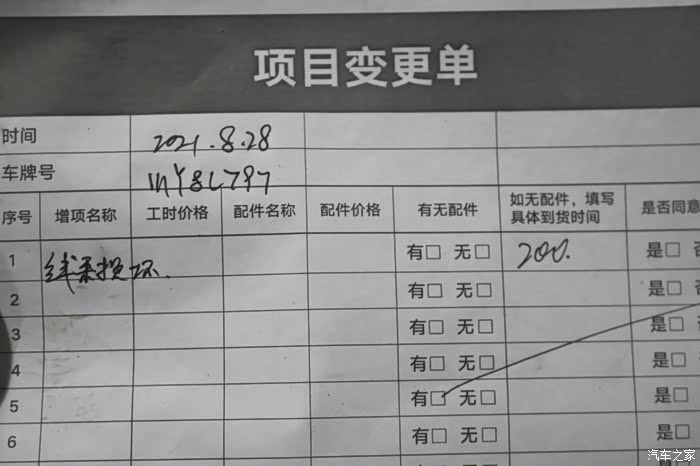 项目变更单
时间 2021.8.28
车牌号
序号 增项名称 工时价格 配件名称 配件价格 有无配件 如无配件，填写具体到货时间 是否同意
1 线束损坏. 有□ 无□ 200. 是□ 否
2 有□ 无□ 是□ 否
3 有□ 无□ 是□
4 有□ 无□ 是□
5 有□ 无□ 是□
6 有□ 无□ 是□
有□ 无□ 是□
汽车之家